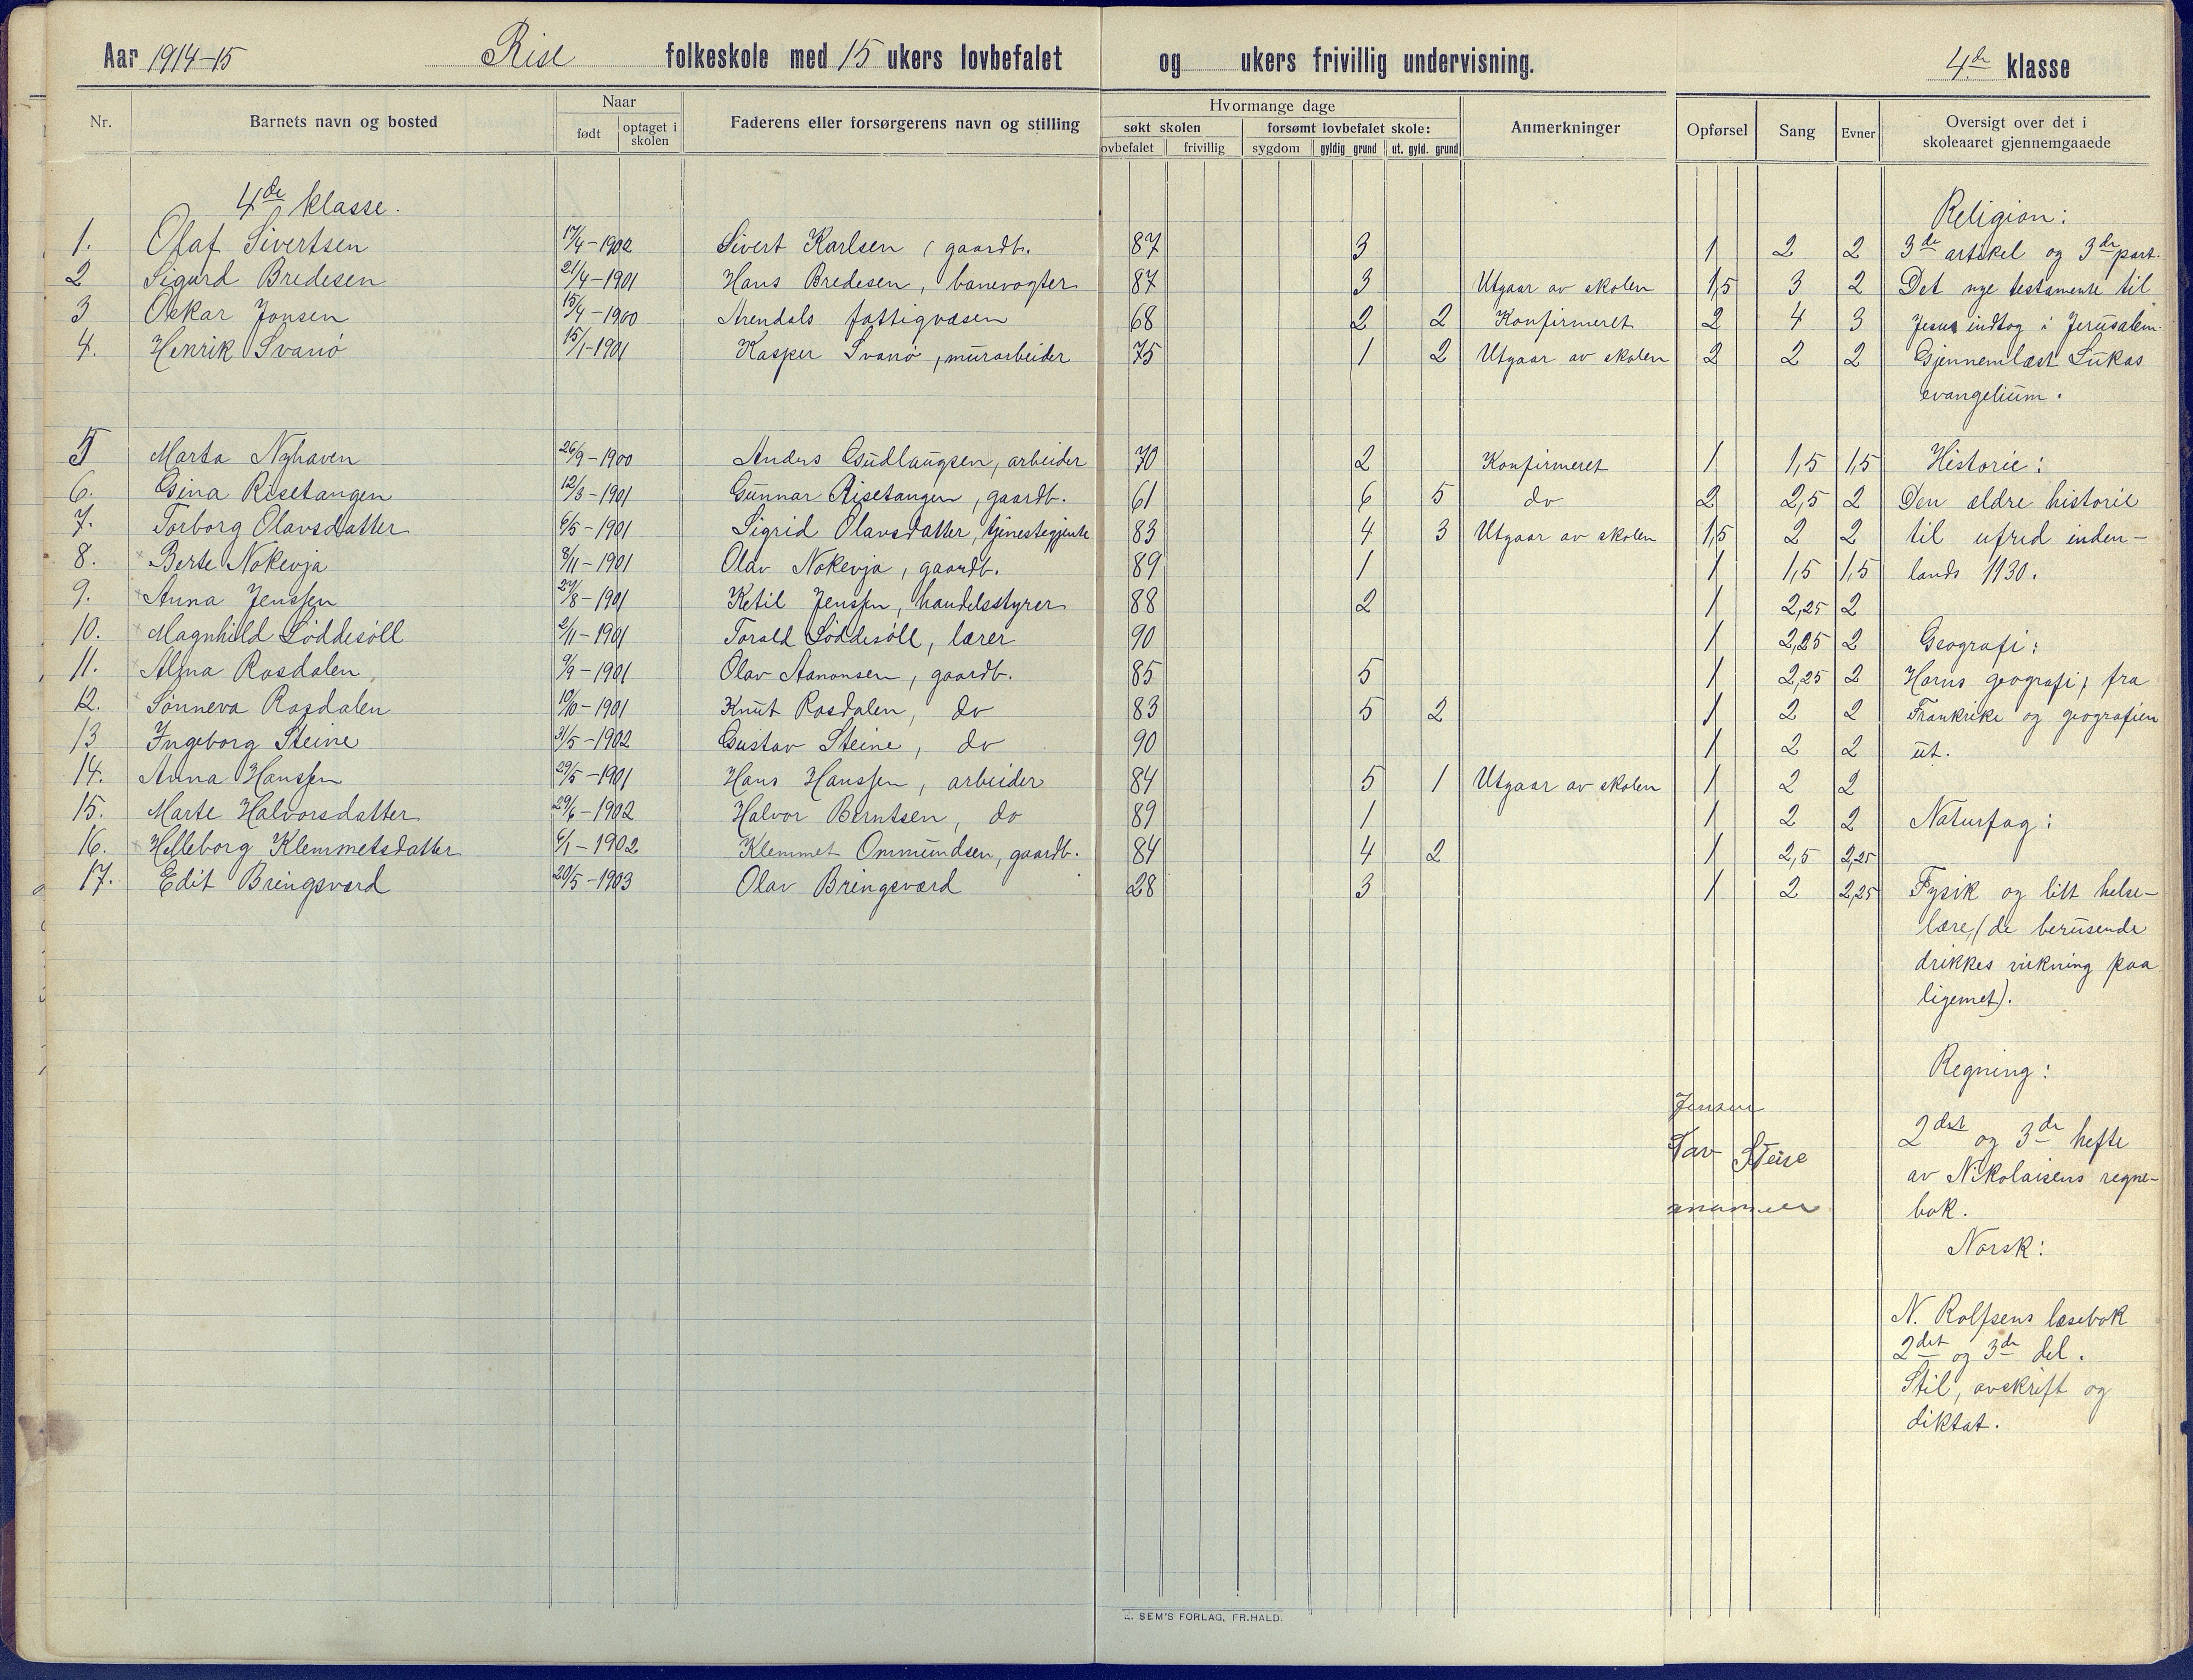 Aar 1914-15 Rise folkeskole med 15 ukers lovbefalet og ukers frivillig undervisning. 4de klasse
Nr. Barnets navn og bosted Naar født optaget i skolen Faderens eller forsørgerens navn og stilling Hvormange dage søkt skolen lovbefalet frivillig forsømt lovbefalet skole: sygdom gyldig grund ut. gyld. grund Anmerkninger Opførsel Sang Evner Oversigt over det i skoleaaret gjennemgaaede
4de klasse.
Religion:
1. Olaf Sivertsen 17/4-1902 Sivert Karlsen, gaardb. 87 3 1 2 2 3de artikel og 3de part.
2 Sigurd Bredesen 21/4-1901 Hans Bredesen, banevogter 87 3 Utgaar av skolen 1,5 3 2 Det nye testamente til
3 Oskar Jonsen 15/4-1900 Arendals fattigvæsen 68 2 2 Konfirmeret 2 4 3 Jesus indtog i Jerusalem.
4. Henrik Svanø 15/1-1901 Kasper Svanø, murarbeider 75 1 2 Utgaar av skolen 2 2 2 Gjennemlæst Lukas
evangelium.
5 Marta Nyhaven 26/9-1900 Anders Gudlaugsen, arbeider 70 2 Konfirmeret 1 1,5 1,5 Historie:
6. Gina Risetangen 12/3-1901 Gunnar Risetangen, gaardb. 61 6 5 do 2 2,5 2 Den ældre historie
7. Torborg Olavsdatter 6/5-1901 Sigrid Olavsdatter, tjenestegjente 83 4 3 Utgaar av skolen 1,5 2 2 til ufred inden-
8. Berte Nokevja 8/11-1901 Olav Nokevja, gaardb. 89 1 1 1,5 1,5 lands 1130.
9. Anna Jenssen 27/8-1901 Ketil Jenssen, handelsstyrer 88 2 1 2,25 2
10. Magnhild Løddesøll 2/11-1901 Torald Løddesøll, lærer 90 1 2,25 2 Geografi:
11. Alma Rosdalen 9/9-1901 Olav Aanonsen, gaardb. 85 5 1 2,25 2 Horns geografi, fra
12. Sønneva Rosdalen 10/10-1901 Knut Rosdalen, do 83 5 2 1 2 2 Frankrike og geografien
13 Ingeborg Steine 31/5-1902 Gustav Steine, do 90 1 2 2 ut.
14. Anna Hanssen 29/5-1901 Hans Hanssen, arbeider 84 5 1 Utgaar av skolen 1 2 2
15. Marte Halvorsdatter 29/6-1902 Halvor Berntsen, do 89 1 1 2 2 Naturfag:
16. Helleborg Klemmetsdatter 6/1-1902 Klemmet Ommundsen, gaardb. 84 4 2 1 2,5 2,25
17. Edit Bringsværd 20/5-1903 Olav Bringsværd 28 3 1 2 2,25 Fysik og litt helse-
lære, (de berusende
drikkes virkning paa
ligemet).
Regning:
Jensen
2det og 3de hefte
Tav Steine
av Nikolaisens regne-
bok.
Norsk:
N. Rolfsens læsebok
2det og 3de del.
Stil, avskrift og
diktat.
E. SEM'S FORLAG, FR.HALD.